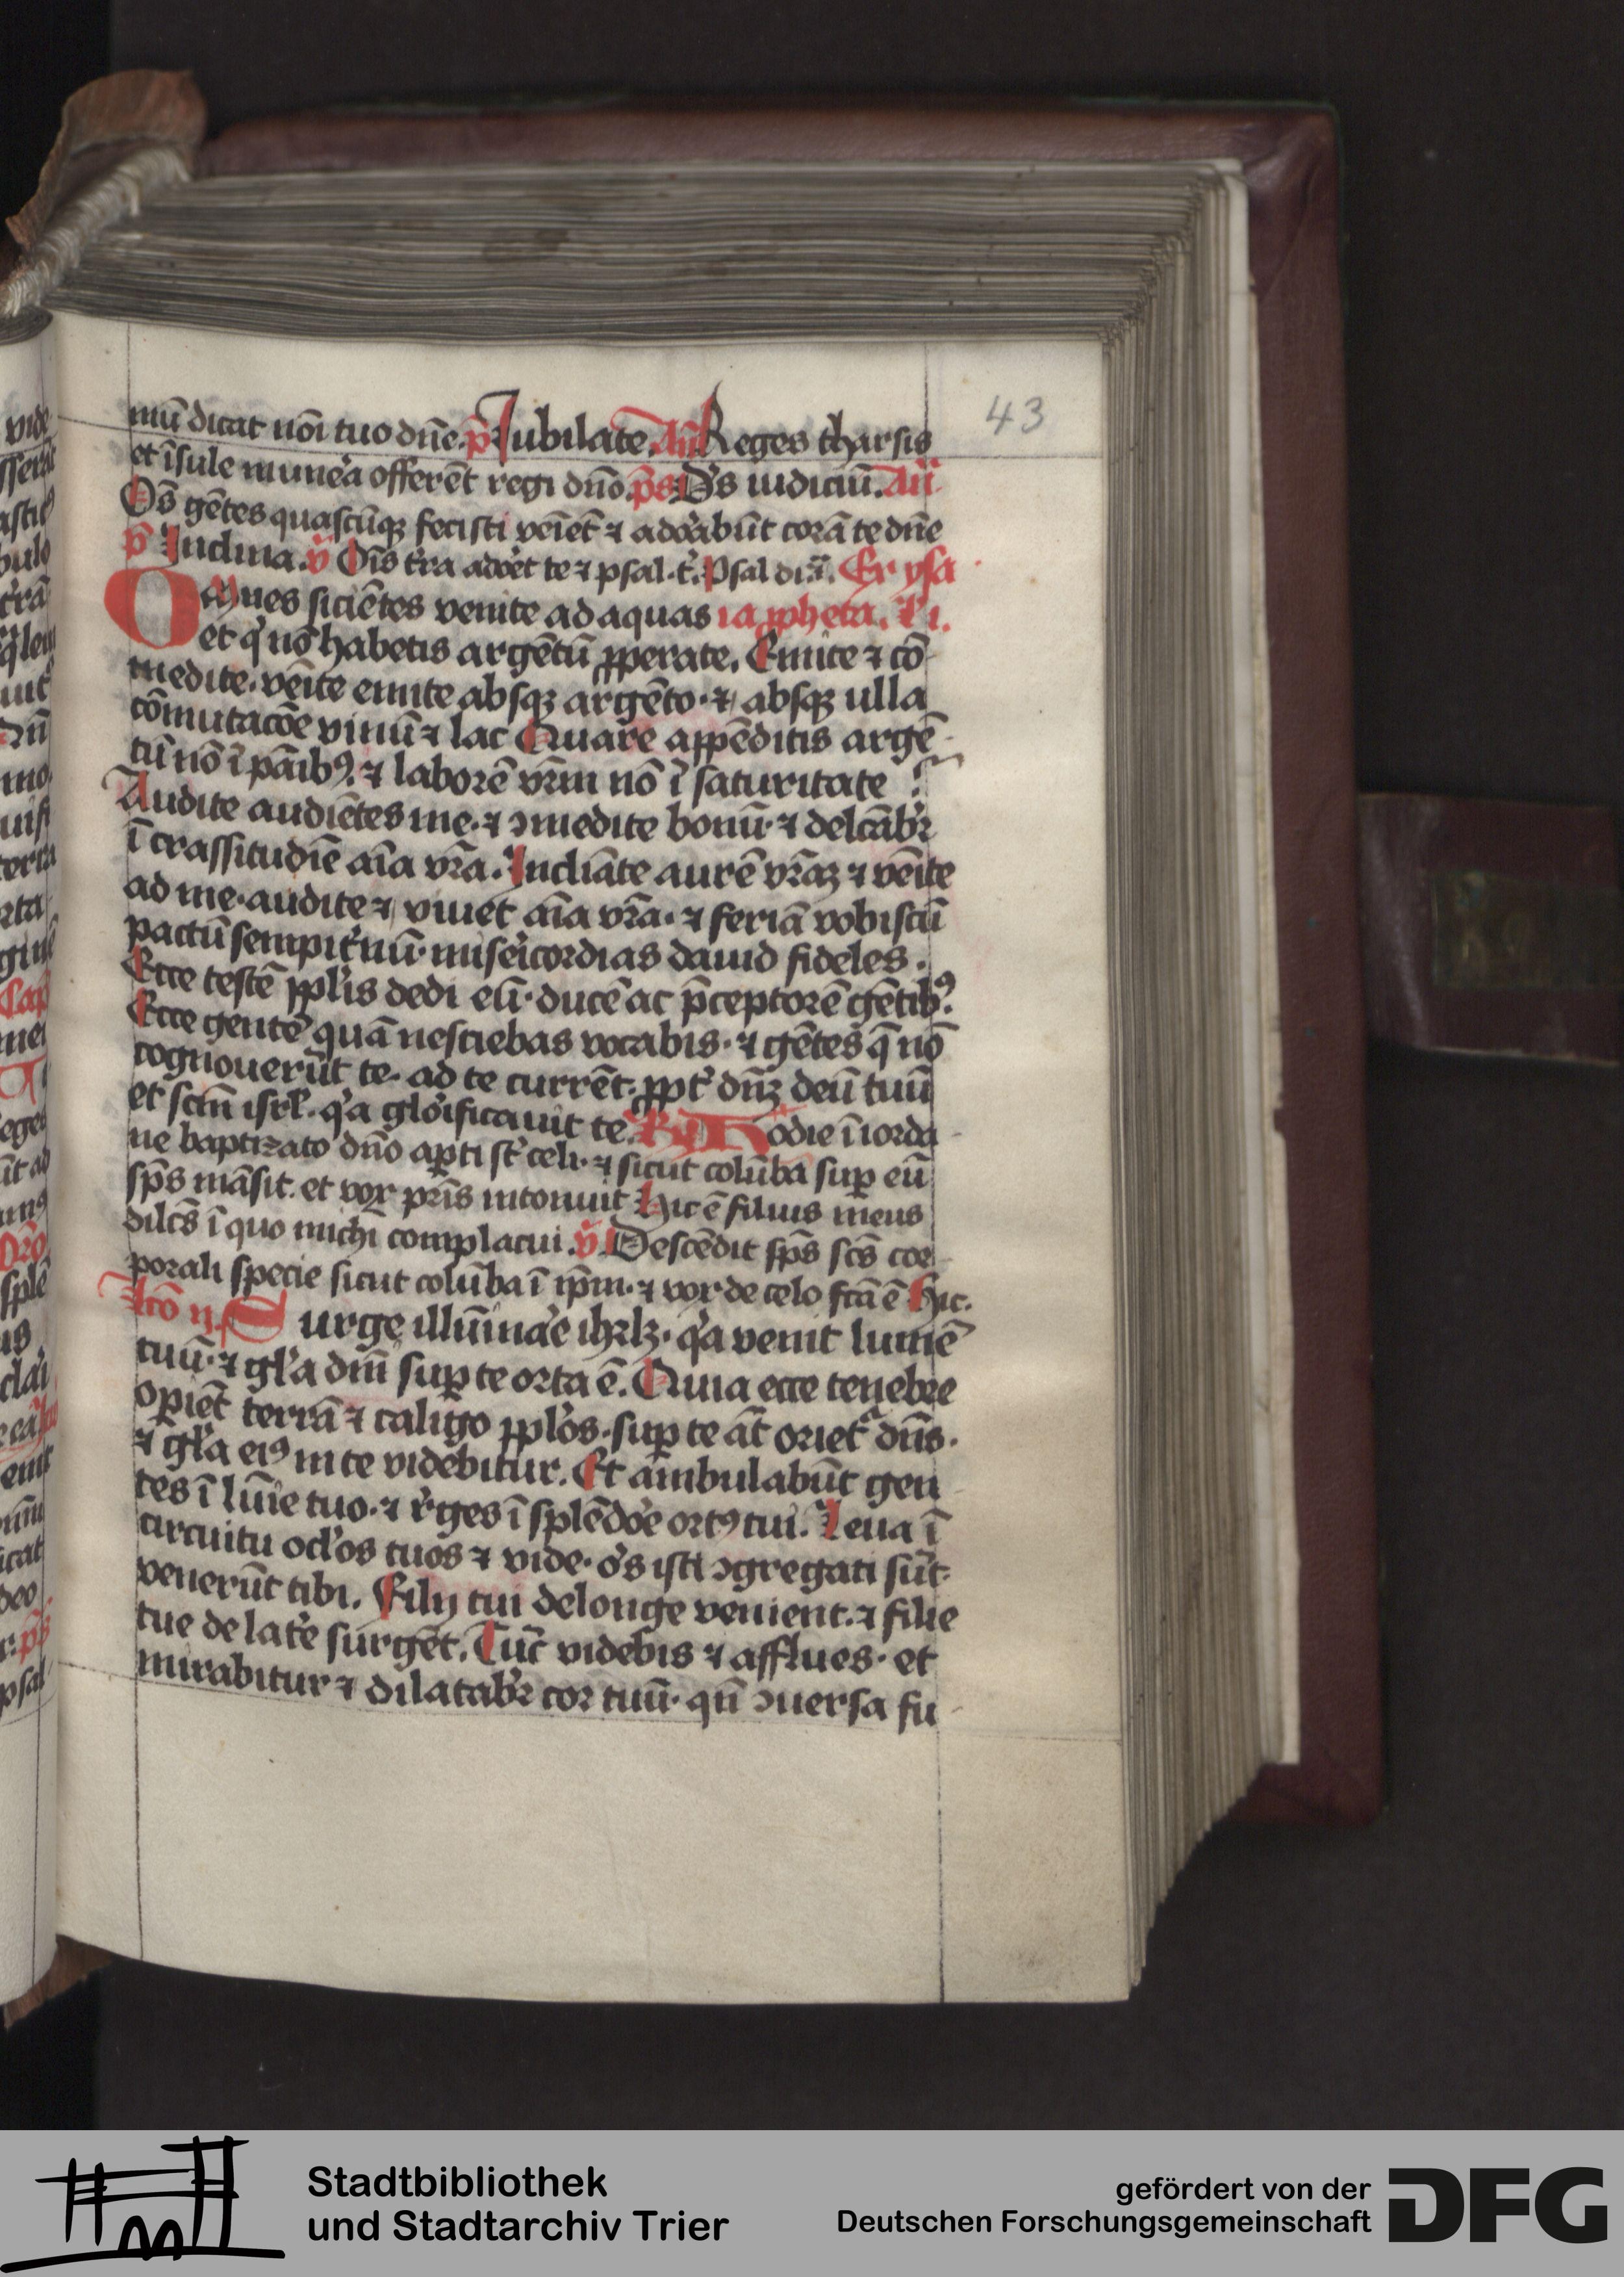 43
mū dicat nōi tuo dn̄e. p̄ Jubilate. An̄ Reges tharsis
et īsule mune'a offerēt regi dn̄o. ps D's iudiciū. An̄
Os̄ gētes quascūqꝫ fecisti veīet ⁊ adoꝛabūt corā te dn̄e
p̄ Inclina. v̄ Oīs t'ra adoꝛet te ⁊ psal. t'. Psal diā. Ex ysa
Omnes siciētes venite ad aquas ia ꝓpheta. L'i.
et q' nō habetis argētū ꝓperate. Emite ⁊ cō
medite. veīte emite absqꝫ argēto. ⁊ absqꝫ ulla
cōmutacōe vinū ⁊ lac Quare appēditis argē
tū nō ī pāibꝰ. ⁊ laborē vr̄m nō ī saturitate
Audite audiētes me. ⁊ ꝯmedite bonū. ⁊ delcāb'r
ī crassitudīe aīa vr̄a. Inclīate aurē vr̄aꝫ ⁊ veīte
ad me. audite ⁊ viuet aīa vr̄a. ⁊ feriā vobiscū
pactū sempit'nū. mise'icordias dauid fideles.
Ecce testē ppl'is dedi eū. ducē ac p̄ceptorē gētibꝰ.
Ecce gentē quā nesciebas vocabis. ⁊ gētes q̄ nō
cognouerūt te. ad te currēt. ꝓpt' dn̄ꝫ deū tuū
et scm̄ isrl'. q'a glo'ificauit te. R̄ Hodie ī iorda
ne baptizato dn̄o aꝑti st' celi. ⁊ sicut colūba suꝑ eū
sp̄s māsit. et vox pr̄is intonuit Hic ē filius meus
dilc̄s ī quo michi complacui. v̄ Descēdit sp̄s sc̄s cor
porali specie sicut colūba ī ip̄m. ⁊ vox de celo fcā ē Hic.
Lcō ij. Surge illūina'e ihrlꝫ. q'a venit lumē
tuū. ⁊ gl'a dm̄ suꝑ te orta ē. Quia ecce tenebre
oꝑiēt terrā ⁊ caligo ppl'os. suꝑ te āt orietᵃ dn̄s.
⁊ gl'a eiꝰ in te videbitur. Et ambulabūt gen
tes ī lūie tuo. ⁊ r'ges ī splēdo'e ortꝰ tui. Leua ī
circuitu ocl'os tuos ⁊ vide. o's isti ꝯgregati sūt
venerūt tibi. Filij tui delonge venient. ⁊ filie
tue de late'e surgēt. Tūc videbis ⁊ afflues. et
mirabitur ⁊ dilatab'r cor tuū. qn̄ ꝯuersa fu
Stadtbibliothek
und Stadtarchiv Trier
gefördert von der
Deutschen Forschungsgemeinschaft
DFG